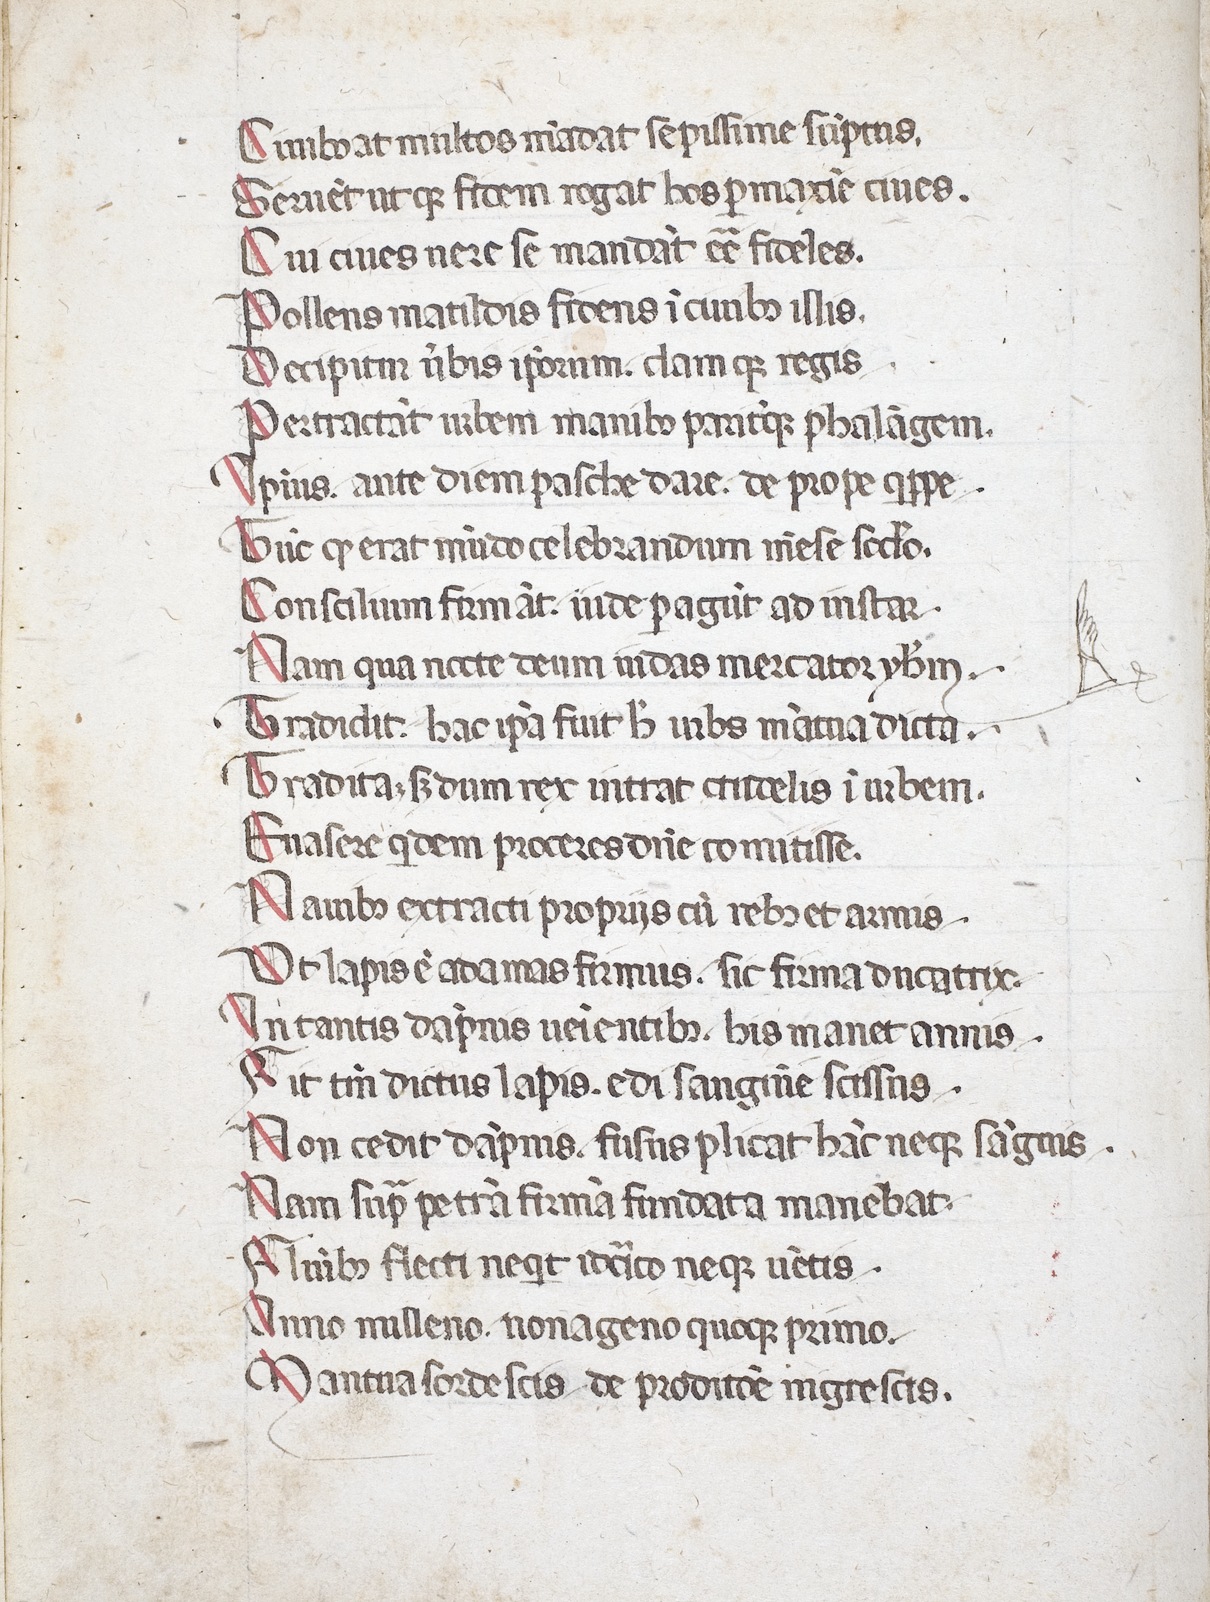 Ciuibꝫ at multos mādat sepissime sciptus.
Seruēt ut qꝫ fidem rogat hos ꝑ maxīe ciues.
Cui ciues uere se mandāt eē̄ fideles.
Pollens matildis fidens ī ciuibꝫ illis.
Decipitur ūbis ipōrum. clam qꝫ regis
Pertractāt urbem manibꝫ parit̄qꝫ phalāgem.
Ipīus. ante diem pasche dare. de prope qͥppe.
Tūc qͦ erat mūdo celebrandum mēse scd̄o.
Conscilium firmāt. iude ꝑagūt ad instar.
Nam qua nocte deum iudas mercator
Tradidit. hac ip̄a fuit h̄ urbs mātua dicta.
Tradita; sꝫ dum rex intrat crudelis ī urbem.
Euasere qͥdem proceres dn̄e comitisse.
Nauibꝫ extracti proprijs cū rebꝫ et armis.
Ut lapis ē adamas firmus. sic firma ducatrix.
In tantis dāpnis ueīentibꝫ. his manet annis.
Fit tn̄ dictus lapis. edi sanguīe scissus.
Non cedit dāpnis. fusus plicat hāc neqꝫ sāguis.
Nam supᵃ petrā firmā fundata manebat.
Fluuībꝫ flecti neqͥt idcͥco neqꝫ uētis.
Anno milleno. nonageno quoqꝫ primo.
Mantua sordescis de proditōe nigrescis.